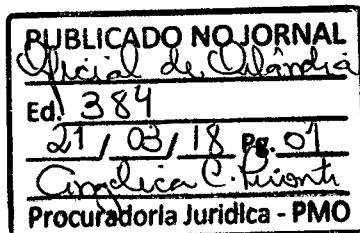 PUBLICADO NO JORNAL
Oficial de Orlândia
Ed. 384
21 / 03 / 18 Pg. 01
Angélica C.
Procuradoria Juridica - PMO